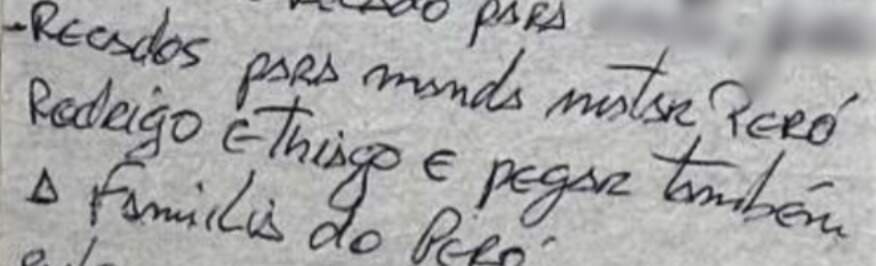 Recado para
- Recados para manda matar Peró
Rodrigo e Thiago e pegar também
a família do Peró